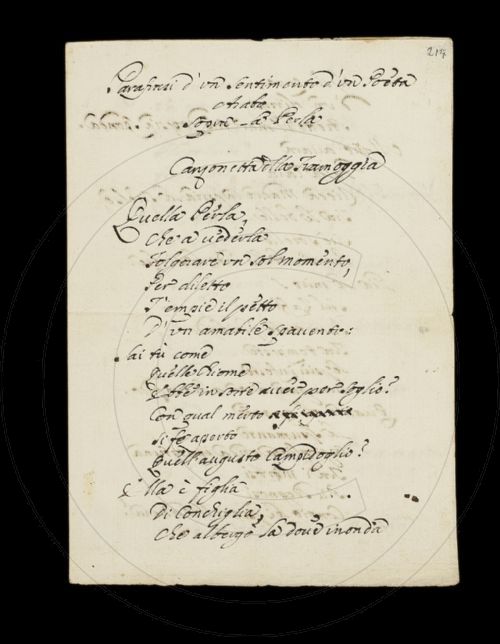 217
Parafrasi d'un Sentimento d'un Poeta
Sopra la Perla
Canzonetta della Tramoggia
Quella Perla,
Che a vederla
Folgorare un sol momento,
Per diletto
T'empie il petto
D'un amabile spavento:
Sai tù come
Quelle Chiome
Ebbe in sorte aver per soglio?
Con qual merto
Si fe aperto
Quell'augusto Campidoglio?
Ella è figlia
Di Conchiglia,
Che albergò là dove inonda